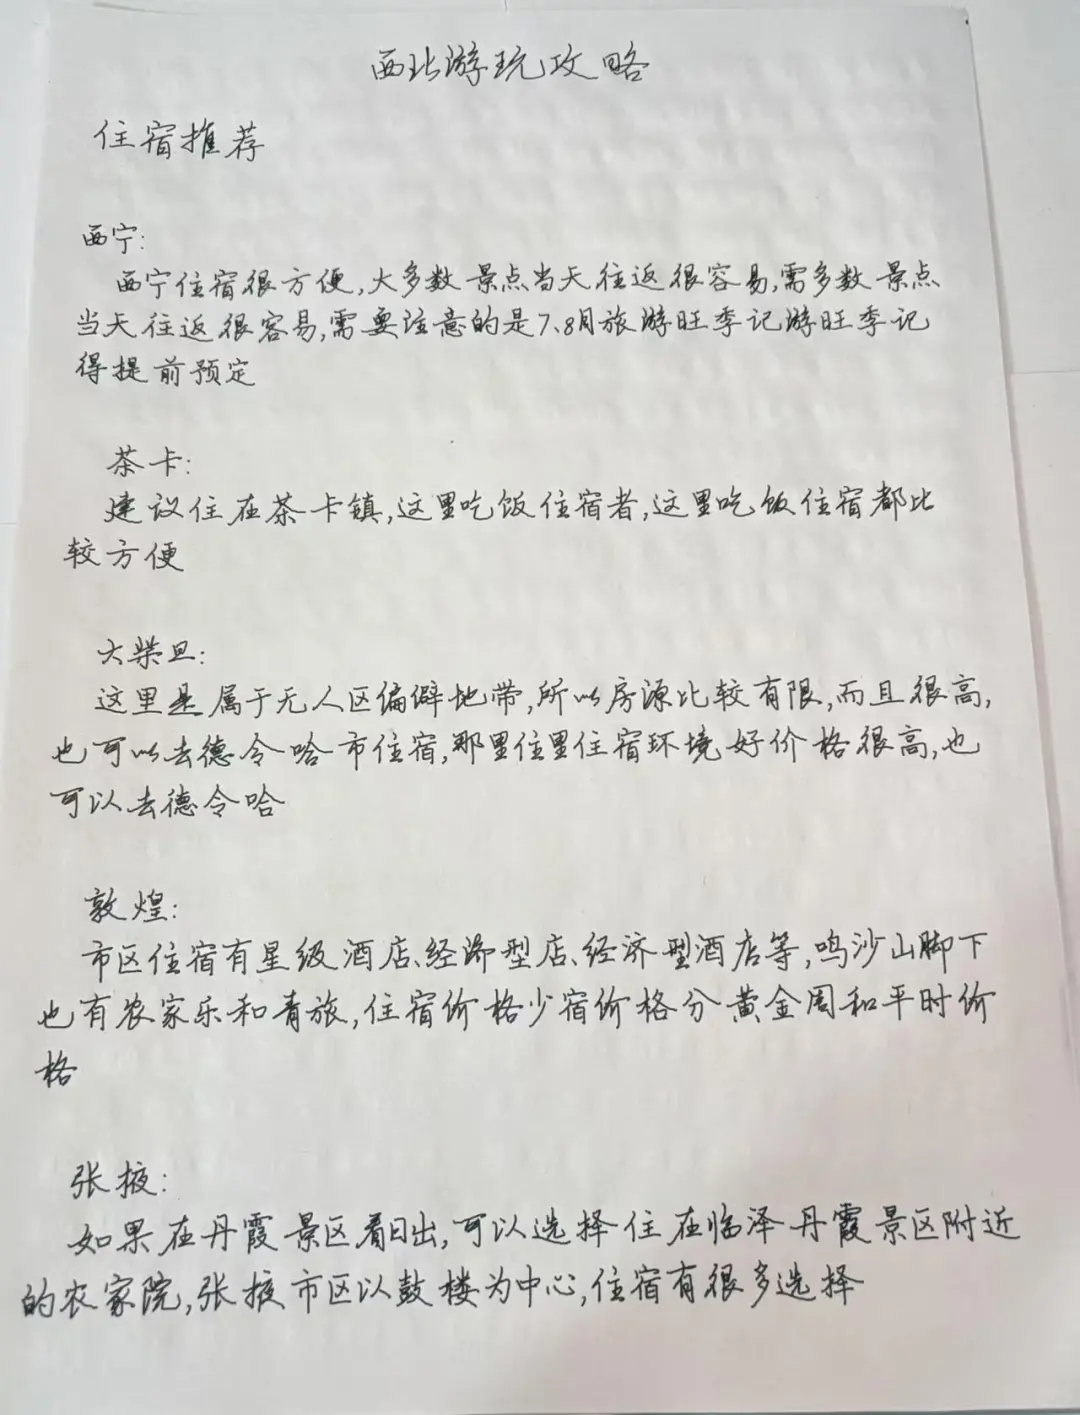 西北游玩攻略
住宿推荐
西宁:
西宁住宿很方便,大多数景点当天往返很容易,需多数景点
当天往返很容易,需要注意的是7、8月旅游旺季记游旺季记
得提前预定
茶卡:
建议住在茶卡镇,这里吃饭住宿者,这里吃饭住宿都比
较方便
大柴旦:
这里是属于无人区偏僻地带,所以房源比较有限,而且很高,
也可以去德令哈市住宿,那里住里住宿环境好价格很高,也
可以去德令哈
敦煌:
市区住宿有星级酒店、经济型店、经济型酒店等,鸣沙山脚下
也有农家乐和青旅,住宿价格少宿价格分黄金周和平时价
格
张掖:
如果在丹霞景区看日出,可以选择住在临泽丹霞景区附近
的农家院,张掖市区以鼓楼为中心,住宿有很多选择